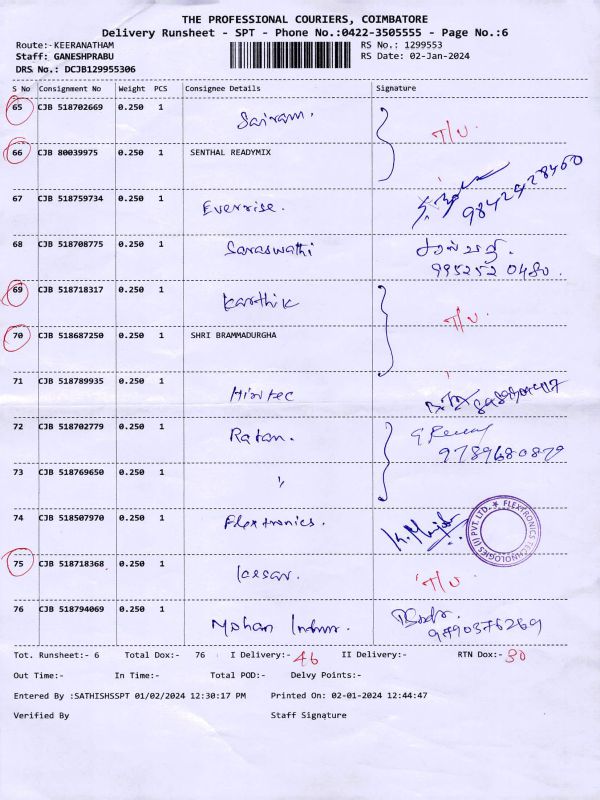 THE PROFESSIONAL COURIERS, COIMBATORE
Delivery Runsheet - SPT - Phone No.:0422-3505555 - Page No.:6
Route:-KEERANATHAM RS No.: 1299553
Staff: GANESHPRABU RS Date: 02-Jan-2024
DRS No.: DCJB129955306
S No Consignment No Weight PCS Consignee Details Signature
65 CJB 518702669 0.250 1 Sairam.
T/U
66 CJB 80039975 0.250 1 SENTHAL READYMIX
67 CJB 518759734 0.250 1 Everrise. 9842428460
68 CJB 518708775 0.250 1 Saraswathi
995252 0480.
69 CJB 518718317 0.250 1 Karthik
T/U.
70 CJB 518687250 0.250 1 SHRI BRAMMADURGHA
71 CJB 518789935 0.250 1 Hintec
72 CJB 518702779 0.250 1 Ratan.
9789680879
73 CJB 518769650 0.250 1 "
74 CJB 518507970 0.250 1 Flextronics.
FLEXTRONICS TECHNOLOGIES (I) PVT. LTD. *
75 CJB 518718368 0.250 1 T/U
76 CJB 518794069 0.250 1 Mohan
9790376269
Tot. Runsheet:- 6 Total Dox:- 76 I Delivery:- 46 II Delivery:- RTN Dox:- 30
Out Time:- In Time:- Total POD:- Delvy Points:-
Entered By :SATHISHSSPT 01/02/2024 12:30:17 PM Printed On: 02-01-2024 12:44:47
Verified By Staff Signature